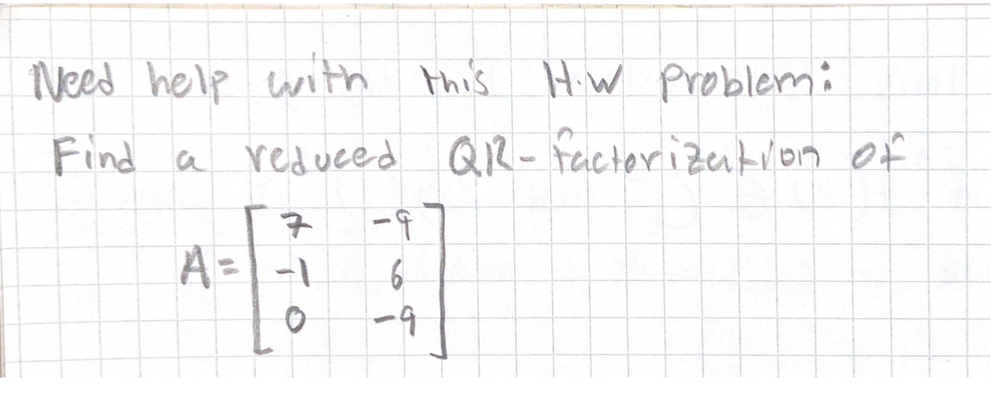 Need help with this H.W problem:
Find a reduced QR-factorization of
A = [ 7 -9
-1 6
0 -9 ]